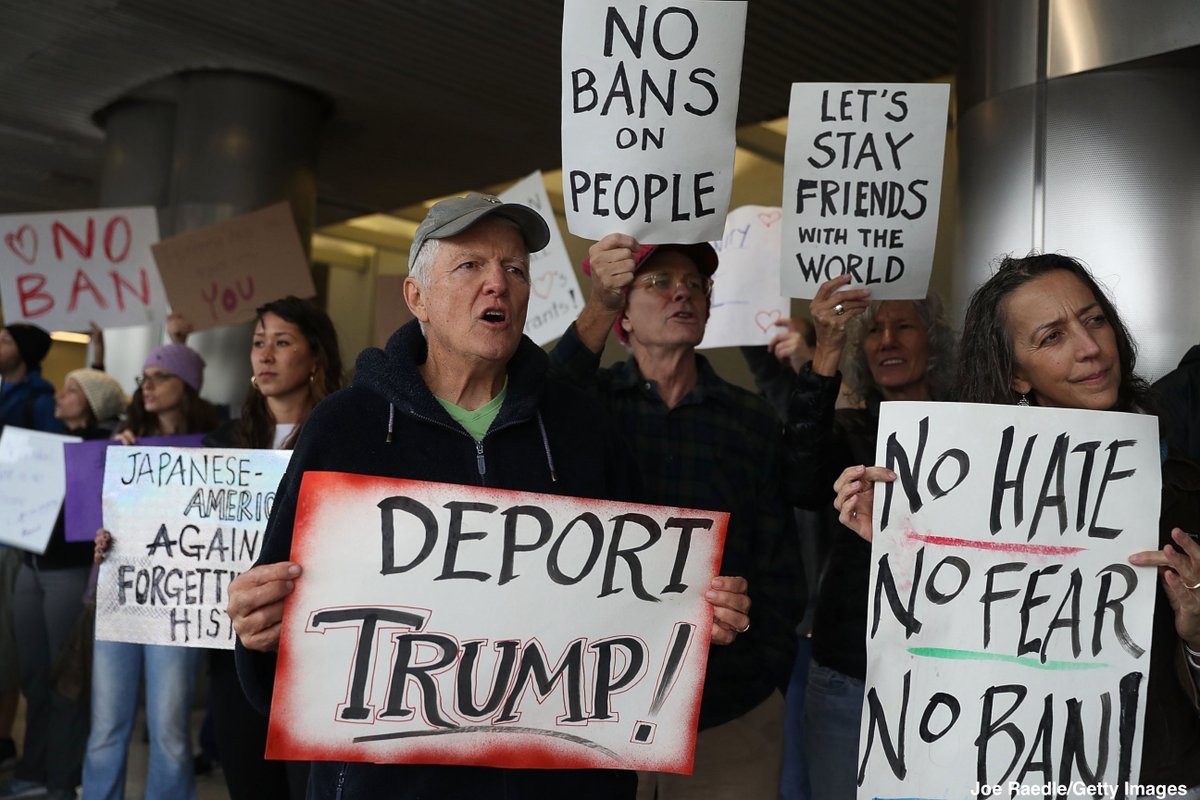 NO
BANS
ON
PEOPLE
LET'S
STAY
FRIENDS
WITH THE
WORLD
NO
BAN
YOU
JAPANESE-
AGAIN
HIST
DEPORT
TRUMP!
NO HATE
NO FEAR
NO BAN!
Joe Raedle/Getty Images